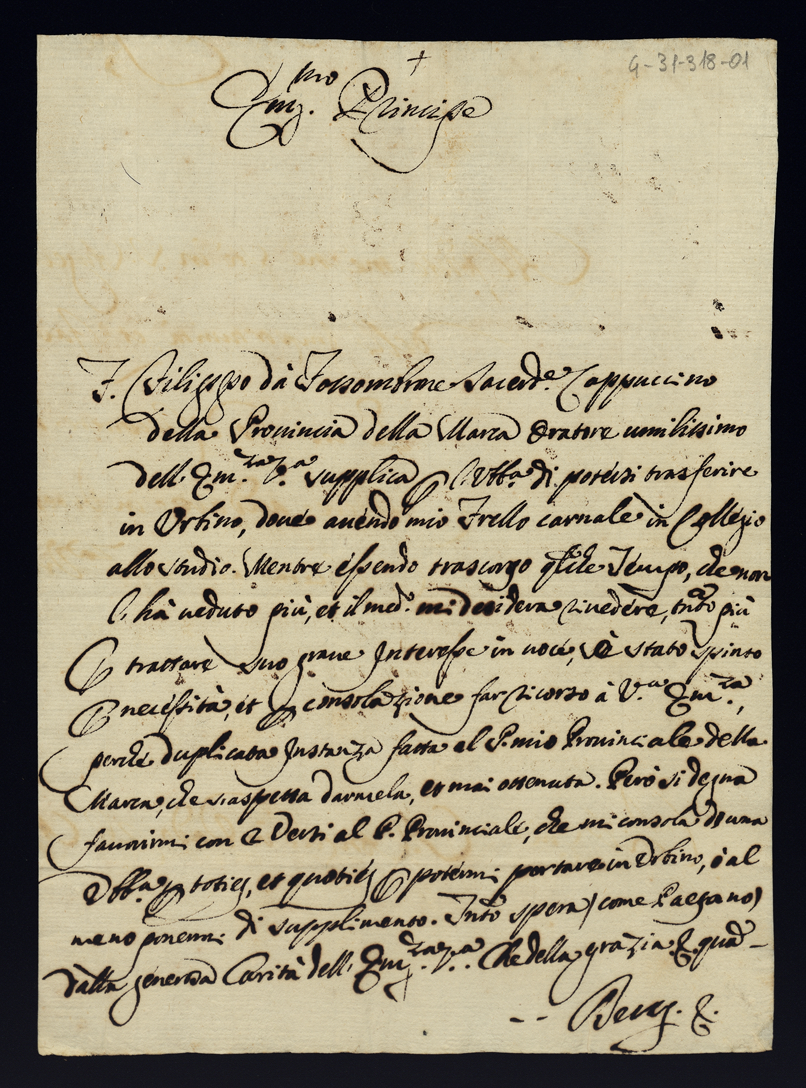 G-31-318-01
+
Em.mo Principe
F. Filippo da Fossombrone Sacerd.e Cappuccino
della Provincia della Marca Oratore umilissimo
dell' Em.za V.a supplica l'Ubb.a di potersi trasferire
in Urbino, dove avendo mio Frello carnale in Collegio
allo studio. Mentre essendo trascorso Tempo, che non
l'hà veduto più, et il med.o mi desidera rivedere, più
trattare suo grave Interesse in voce, è stato spinto
necessità, et consolazione far ricorso à V.a Em.za,
perche duplicata Instanza fatta al P. mio Provinciale della
Marca, che s'aspetta darmela, et mai ottenuta. Però si degna
favorirmi con 2 Versi al P. Provinciale, che mi consola di una
Ubb.a toties, et quoties potermi portare in Urbino, ò al
meno ponermi di supplimento. spera come
dalla generosa Carità dell' Em.za V.a. Che della grazia &. quã
-- &.